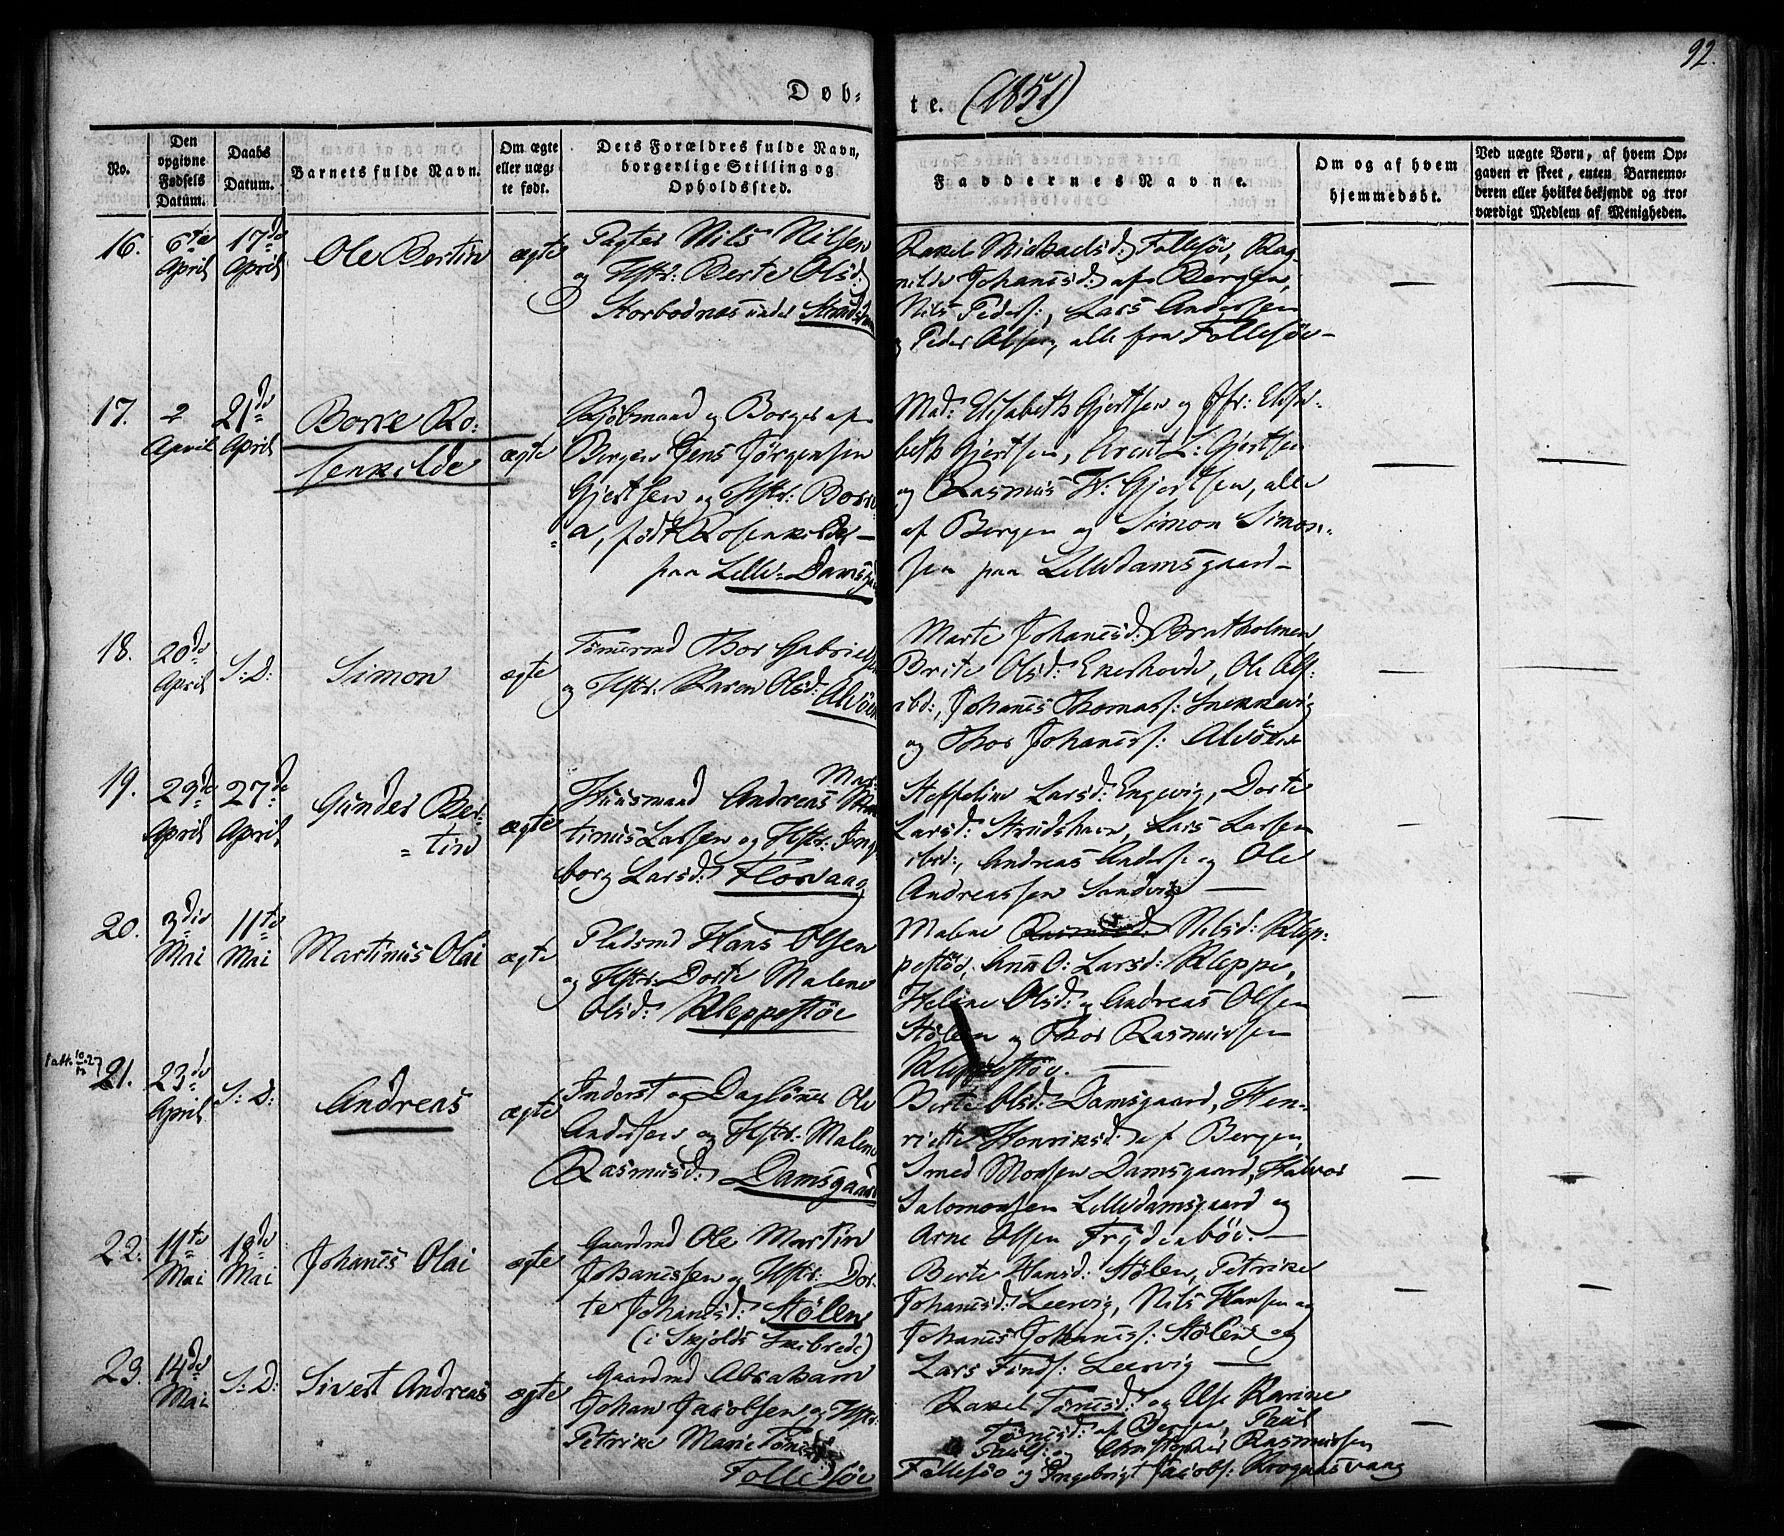 92.
Døb-
te. (1851)
No.
Den opgivne Fødsels Datum.
Daabs Datum.
Barnets fulde Navn.
Om ægte eller uæg-
te født.
Dets Forældres fulde Navn,
borgerlige Stilling og
Opholdssted.
Faddernes Navne.
Om og af hvem
hjemmedøbt.
Ved uægte Børn, af hvem Op-
gaven er skeet, enten Barnemo-
deren eller hvilket bekjendt og tro-
værdigt Medlem af Menigheden.
16. 6te April 17de April Ole Bertin ægte
Pagter Nils Nilsen
og Hstr: Berte Olsd:
Storbodnes under
Rakel Michaelsd: Follesöe, Rag-
nilde Johanisd: af Bergen,
Nils Peders:, Lars Andersen
og Peder Olsen, alle fra Follesöe —
17. 2 April 21de April Borre Ro-
senkilde ægte
Kjøbmand og Borger af
Bergen Jens Jörgensen
Gjertsen og Hstr: Borre-
a, født Rosenkilde —
paa Lille-Damsg
Mad: Elisabeth Gjertsen og Jfr: Elisa-
beth Gjertsen, Arent L: Gjertsen
og Rasmus W: Gjertsen, alle
af Bergen og Simon Simon-
sen paa Lilledamsgaard —
18. 20de April S: D: Simon ægte
Tömermd Thor Gabriels
og Hstr: Karen Olsd: Alvöen
Marte Johanisd: Bratholmen,
Brite Olsd: Ekerhovd, Ole Ols:
ibd:, Johanis Thomass: Snekkevig
og Thor Johaniss: Alvöen
19. 29de April 27de April Gunder Ber-
tin ægte
Huusmand Andreas Mar-
tinus Larsen og Hstr: Inge-
borg Larsd: Florvaag
Steffeline Larsd: Engevig, Dorte
Larsd: Strudshavn, Lars Larsen
ibd:, Andreas Anders: og Ole
Andreassen Sandvig —
20. 3die Mai 11te Mai Martinus Olai ægte
Pladsmd Hans Olsen
og Hstr: Dorte Malene
Olsd: Kleppestöe
Malene Nilsd: Klep-
pestöe, Anna O: Larsd: Kleppe,
Helene Olsd: og Andreas Olsen
Stölen og Thor Rasmussen
Kleppestöe. —
21. 23de April S: D: Andreas ægte
Inderst og Daglönner Ole
Andersen og Hstr: Malene
Rasmusd: Damsgaard
Berte Olsd: Damsgaard, Hen-
riette Henriksd: af Bergen,
Smed Monsen Damsgaard, Halvor
Salomonsen Lilledamsgaard og
Arne Olsen Frydenböe. —
22. 11te Mai 18de Mai Johanis Olai ægte
Gaardmd Ole Martin
Johanissen og Hstr: Dor-
te Johanisd: Stölen
(i Skjolds Skibrede)
Berte Hansd: Stölen, Petrike
Johanisd: Leervig, Nils Hansen og
Johanis Johaniss: Stölen og
Lars Finds: Leervig —
23. 14de Mai S: D: Sivert Andreas ægte
Gaardmd Abraham
Johan Jacobsen og Hstr:
Petrike Marie
Follesöe
Rakel Tönisd: og Else Karine
Tönisd: af Bergen, Paul
Pauls: og Christopher Rasmussen
Follesöe og Ingebrigt Jacobs: Krognesvaag